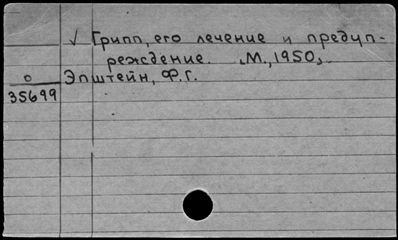 √ Грипп, его лечение и предуп-
реждение. М., 1950.
о Эпштейн, Ф.Г.
35699